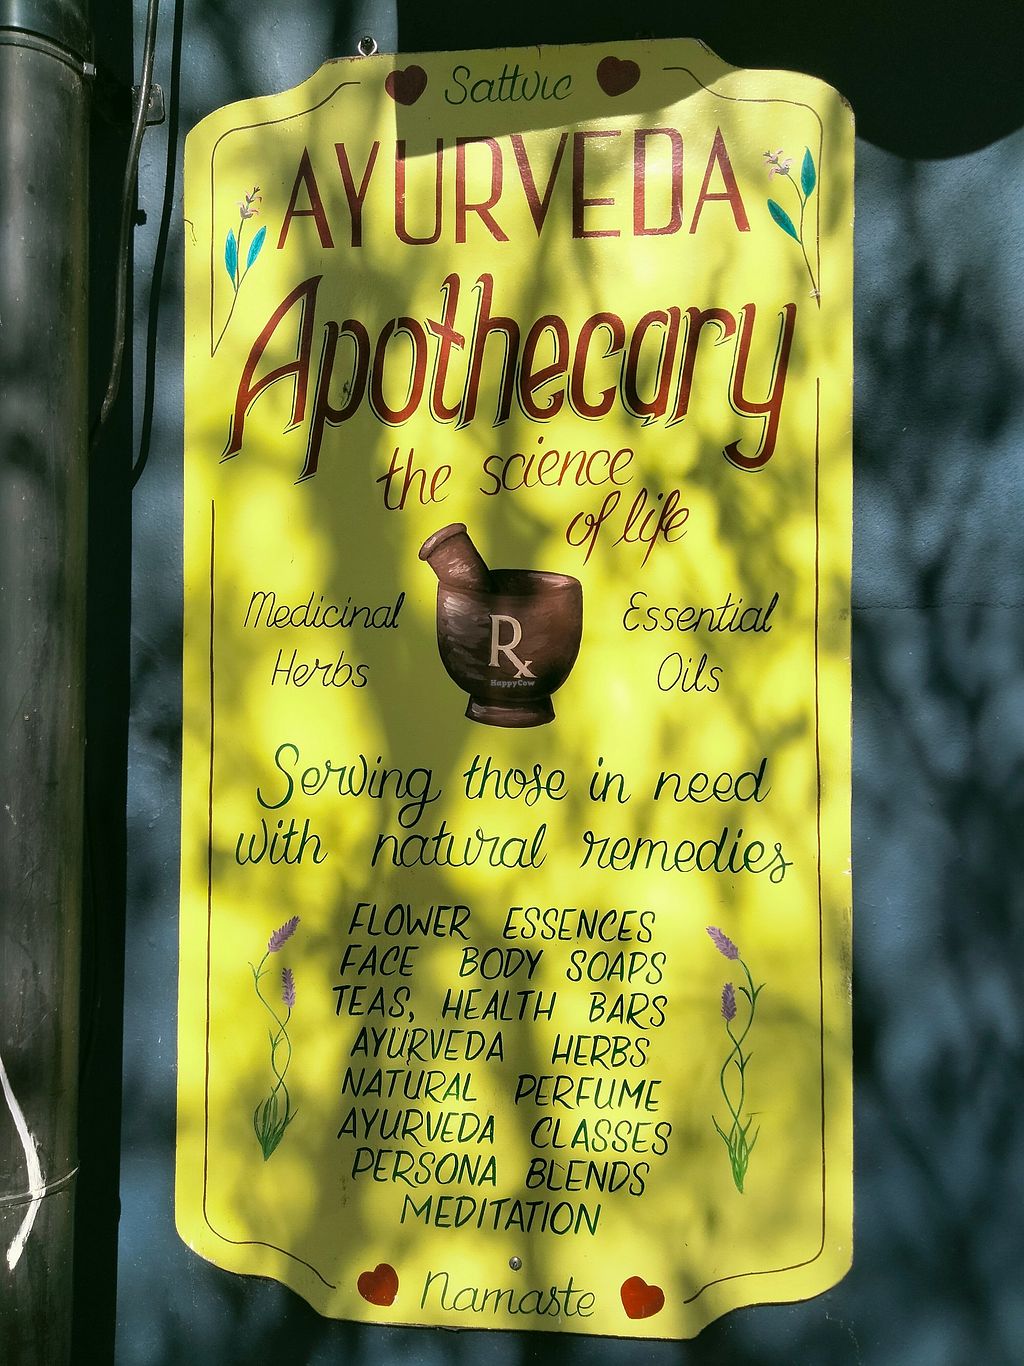 Sattvic
AYURVEDA
Apothecary
the science
of life
Medicinal
Herbs
Rx
HappyCow
Essential
Oils
Serving those in need
with natural remedies
FLOWER ESSENCES
FACE BODY SOAPS
TEAS, HEALTH BARS
AYURVEDA HERBS
NATURAL PERFUME
AYURVEDA CLASSES
PERSONA BLENDS
MEDITATION
Namaste